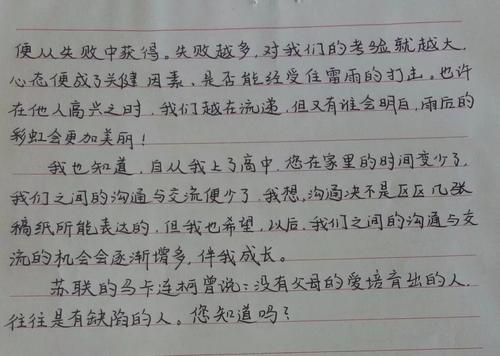 便从失败中获得。失败越多，对我们的考验就越大，
心态便成了关健因素、是否能经受住雷雨的打击。也许
在他人高兴之时，我们越在流递，但又有谁会明白，雨后的
彩虹会更加美丽！
我也知道，自从我上了高中，您在家里的时间变少了，
我们之间的沟通与交流便少了，我想，沟通决不是区区几张
稿纸所能表达的，但我也希望，以后，我们之间的沟通与交
流的机会会逐渐增多，伴我成长。
苏联的马卡连柯曾说：没有父母的爱培育出的人，
往往是有缺陷的人。您知道吗？